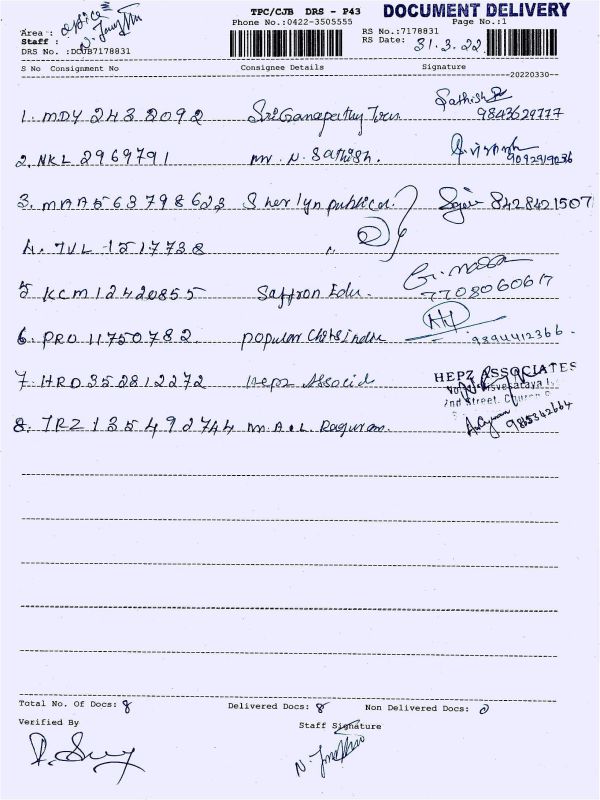 TPC/CJB DRS - P43 DOCUMENT DELIVERY
Phone No.:0422-3505555 Page No.:1
Area : office
Staff :
DRS No. :DCJB7178831
RS No.:7178831
RS Date: 31.3.22
S No Consignment No Consignee Details Signature
20220330
1. MDY 243 2092 Sri Ganapathy Sathish 9843629777
2. NKL 2969791 Mr. N. Sathish. 9092919036
3. MAA563798623 Sherlyn publicat. 8428421507
4. TVL 1517738 "
5 KCM12420855 Saffron Edu. 7708060617
6. PRO 11750782 popular Chits india 9894412366
7. HRO352812272 Hepz Associa HEPZ ASSOCIATES
2nd Street,
8. TRZ 135492744 Mr. A.L. Raguram. 9845342664
Total No. Of Docs: 8 Delivered Docs: 8 Non Delivered Docs: 0
Verified By Staff Signature